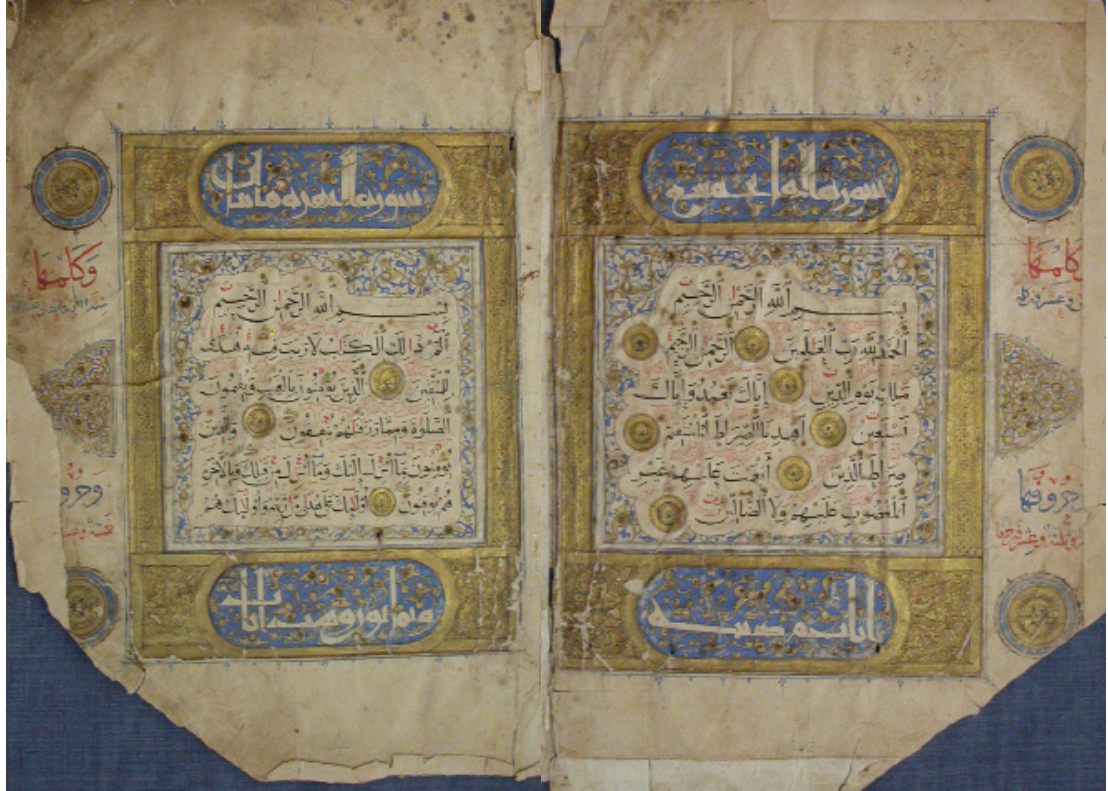 سورة
بسم الله الرحمن الرحيم
الحمد لله رب العلمين الرحمن الرحيم
ملك يوم الدين إياك نعبد وإياك
نستعين اهدنا الصراط المستقيم
صراط الذين أنعمت عليهم غير
المغضوب عليهم ولا الضالين
ايات
كلمها
حروفها
سورة البقرة مائتان
بسم الله الرحمن الرحيم
الم ذلك الكتب لا ريب فيه هدى
للمتقين الذين يؤمنون بالغيب ويقيمون
الصلوة ومما رزقنهم ينفقون والذين
يؤمنون بما أنزل إليك وما أنزل من قبلك وبالآخرة
هم يوقنون أولئك على هدى من ربهم وأولئك هم
وثمانون وست ايات
وكلمها
وحرو